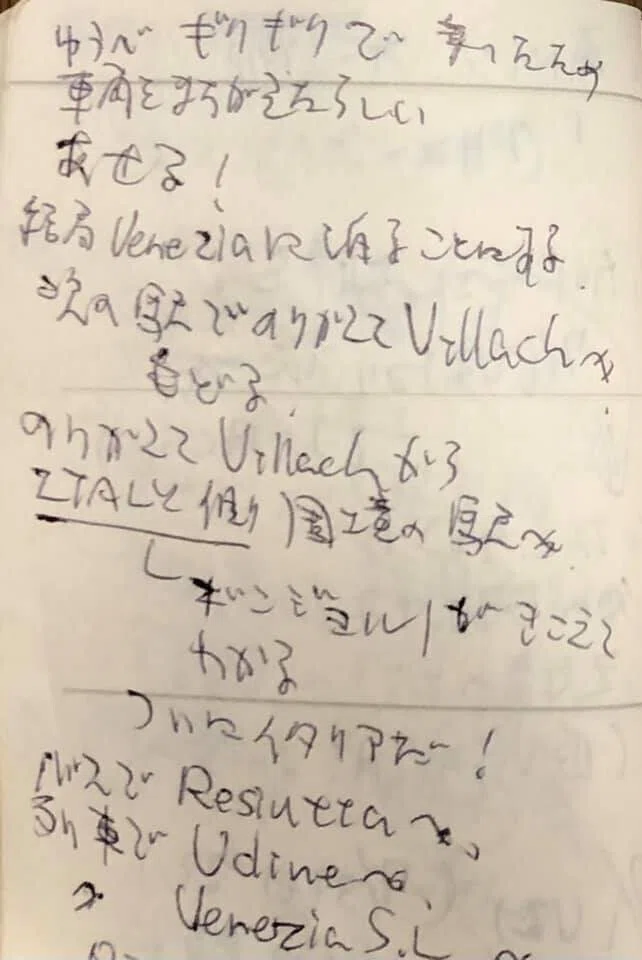 ゆうべ ギリギリで 乗ったため
車両をまちがえたらしい
あせる!
結局 Veneziaに泊ることにする.
次の駅でのりかえて Villachへ
もどる.
のりかえて Villachから
ITALY側 国境の駅へ.
ボンジョルノがきこえて
わかる
ついにイタリアだー!
バスで Resiuttaへ、
列車で Udineへ.
Venezia S.L